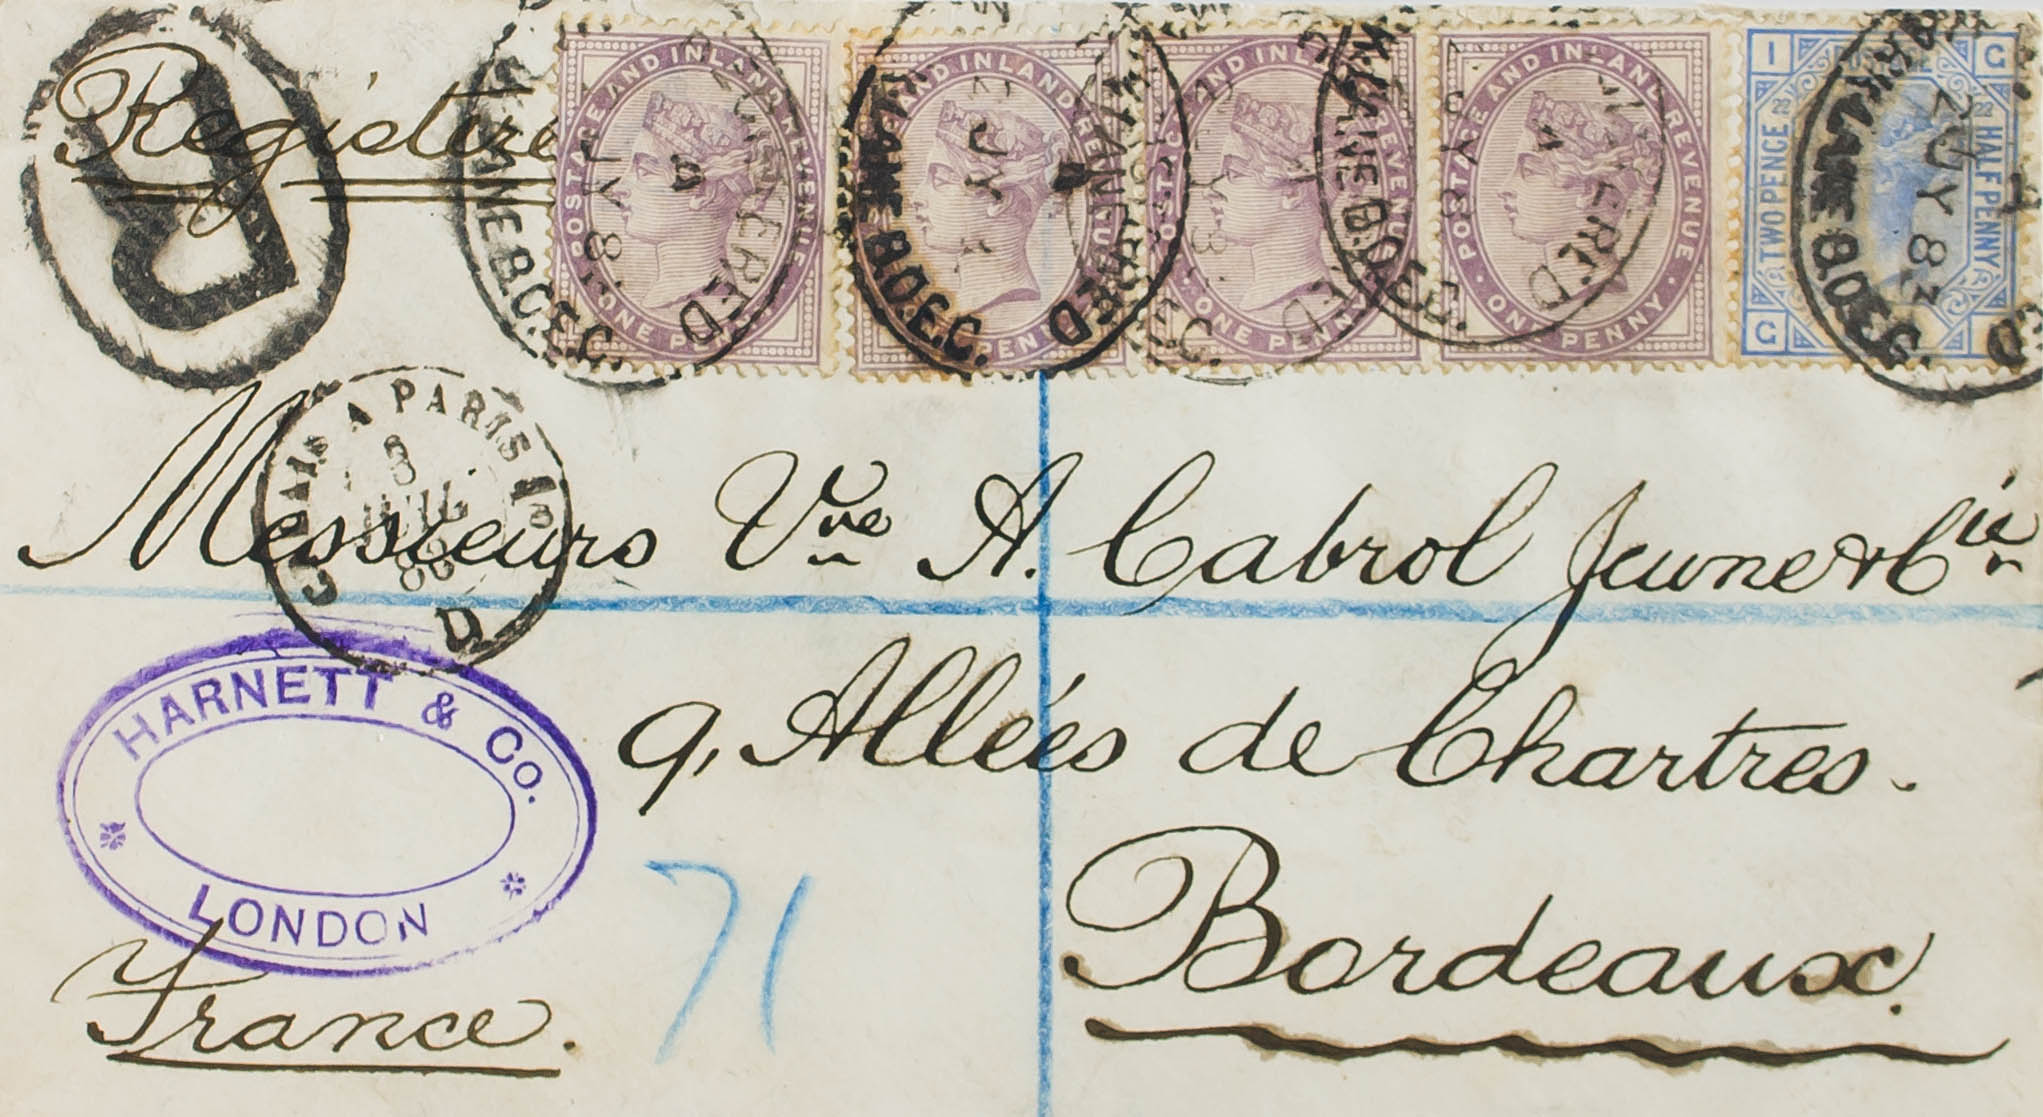 Registere
R
POSTAGE AND INLAND REVENUE
ONE PENNY
POSTAGE AND INLAND REVENUE
ONE PENNY
POSTAGE AND INLAND REVENUE
ONE PENNY
POSTAGE AND INLAND REVENUE
ONE PENNY
I G
22 22
TWO PENCE HALF PENNY
G I
REGISTERED
MARK LANE B.O.E.C.
2 JY 83
CALAIS A PARIS 1º
3
JUIL
83
D
Messieurs Vve A. Cabrol Jeune & Cie
9, Allées de Chartres.
Bordeaux.
HARNETT & CO.
LONDON
71
France.